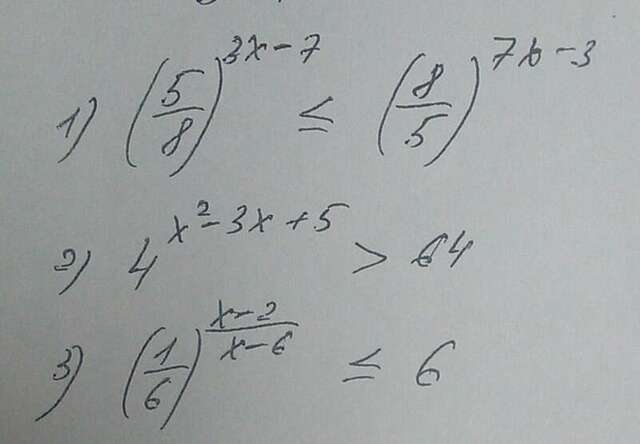 1) (5/8)^(3x-7) ≤ (8/5)^(7x-3)
2) 4^(x²-3x+5) > 64
3) (1/6)^((x-2)/(x-6)) ≤ 6